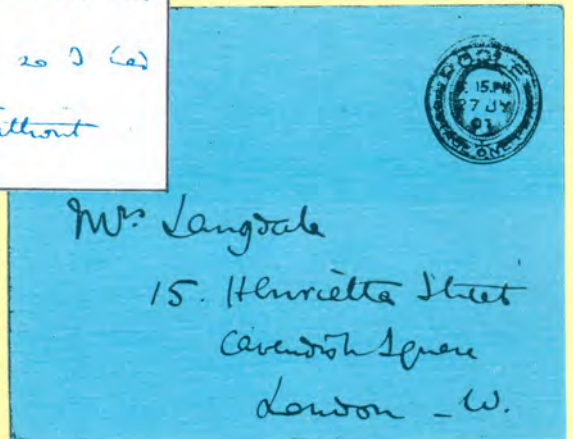 so I had
without
POOLE
15.PM
27 JY
01
Mrs. Langdale
15. Henrietta Street
Cavendish Square
London - W.